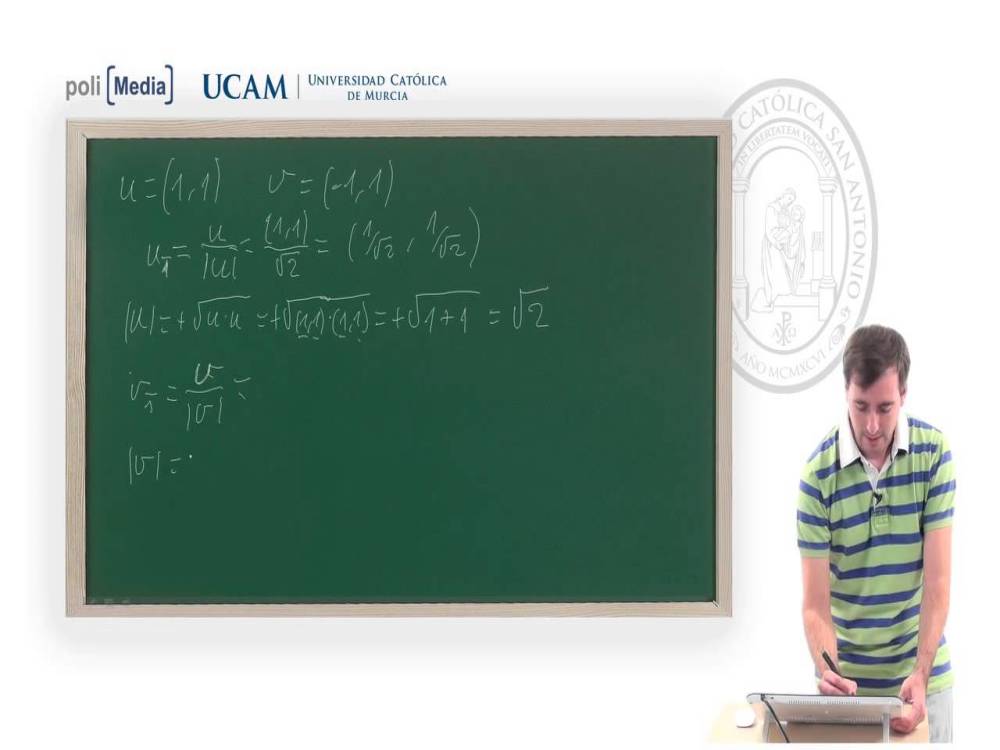 poli [Media] UCAM | UNIVERSIDAD CATÓLICA
DE MURCIA
CATÓLICA SAN ANTONIO
IN LIBERTATEM VOCATI
AÑO MCMXCVI
u = (1,1) v = (-1,1)
u₁ = u/|u| = (1,1)/√2 = (1/√2, 1/√2)
|u| = +√u·u = +√(1,1)·(1,1) = +√1+1 = √2
v₁ = v/|v| =
|v| =